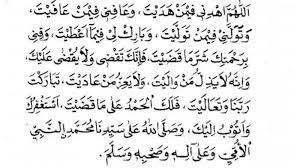 اَللّٰهُمَّ اهْدِنِيْ فِيْمَنْ هَدَيْتَ، وَعَافِنِيْ فِيْمَنْ عَافَيْتَ،
وَتَوَلَّنِيْ فِيْمَنْ تَوَلَّيْتَ، وَبَارِكْ لِيْ فِيْمَا اَعْطَيْتَ، وَقِنِيْ
بِرَحْمَتِكَ شَرَّمَا قَضَيْتَ، فَاِنَّكَ تَقْضِيْ وَلَا يُقْضٰى عَلَيْكَ،
وَاِنَّهُ لَا يَذِلُّ مَنْ وَالَيْتَ، وَلَا يَعِزُّ مَنْ عَادَيْتَ، تَبَارَكْتَ
رَبَّنَا وَتَعَالَيْتَ، فَلَكَ الْحَمْدُ عَلٰى مَا قَضَيْتَ، اَسْتَغْفِرُكَ
وَاَتُوْبُ اِلَيْكَ، وَصَلَّى اللهُ عَلٰى سَيِّدِنَا مُحَمَّدٍ النَّبِيِّ
الْاُمِّيِّ وَعَلٰى اٰلِهِ وَصَحْبِهِ وَسَلَّمَ.